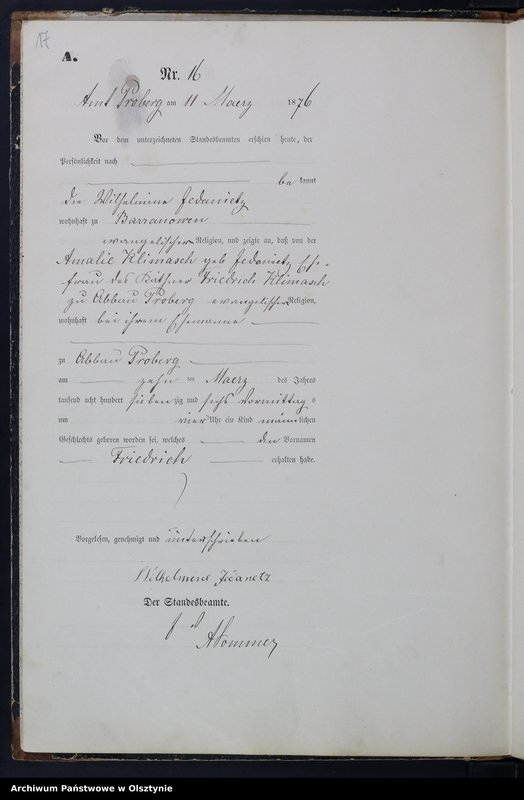 17
A.
Nr. 16
Amt Proberg am 11 Maerz 1876
Vor dem unterzeichneten Standesbeamten erschien heute, der
Persönlichkeit nach
be kannt
die Wilhelmine Jedanietz
wohnhaft zu Barranowen
evangelischer Religion, und zeigte an, daß von der
Amalie Klimasch geb Jedonietz Ehe-
frau des Käthner Friedrich Klimasch
zu Abbau Proberg evangelischer Religion,
wohnhaft bei ihrem Ehemanne
zu Abbau Proberg
am zehn ten Maerz des Jahres
tausend acht hundert sieben zig und sechs Vormittag s
um vier Uhr ein Kind männ lichen
Geschlechts geboren worden sei, welches den Vornamen
Friedrich erhalten habe.
Vorgelesen, genehmigt und unterschrieben
Wilhelmine Jedanetz
Der Standesbeamte.
A Sommer
Archiwum Państwowe w Olsztynie